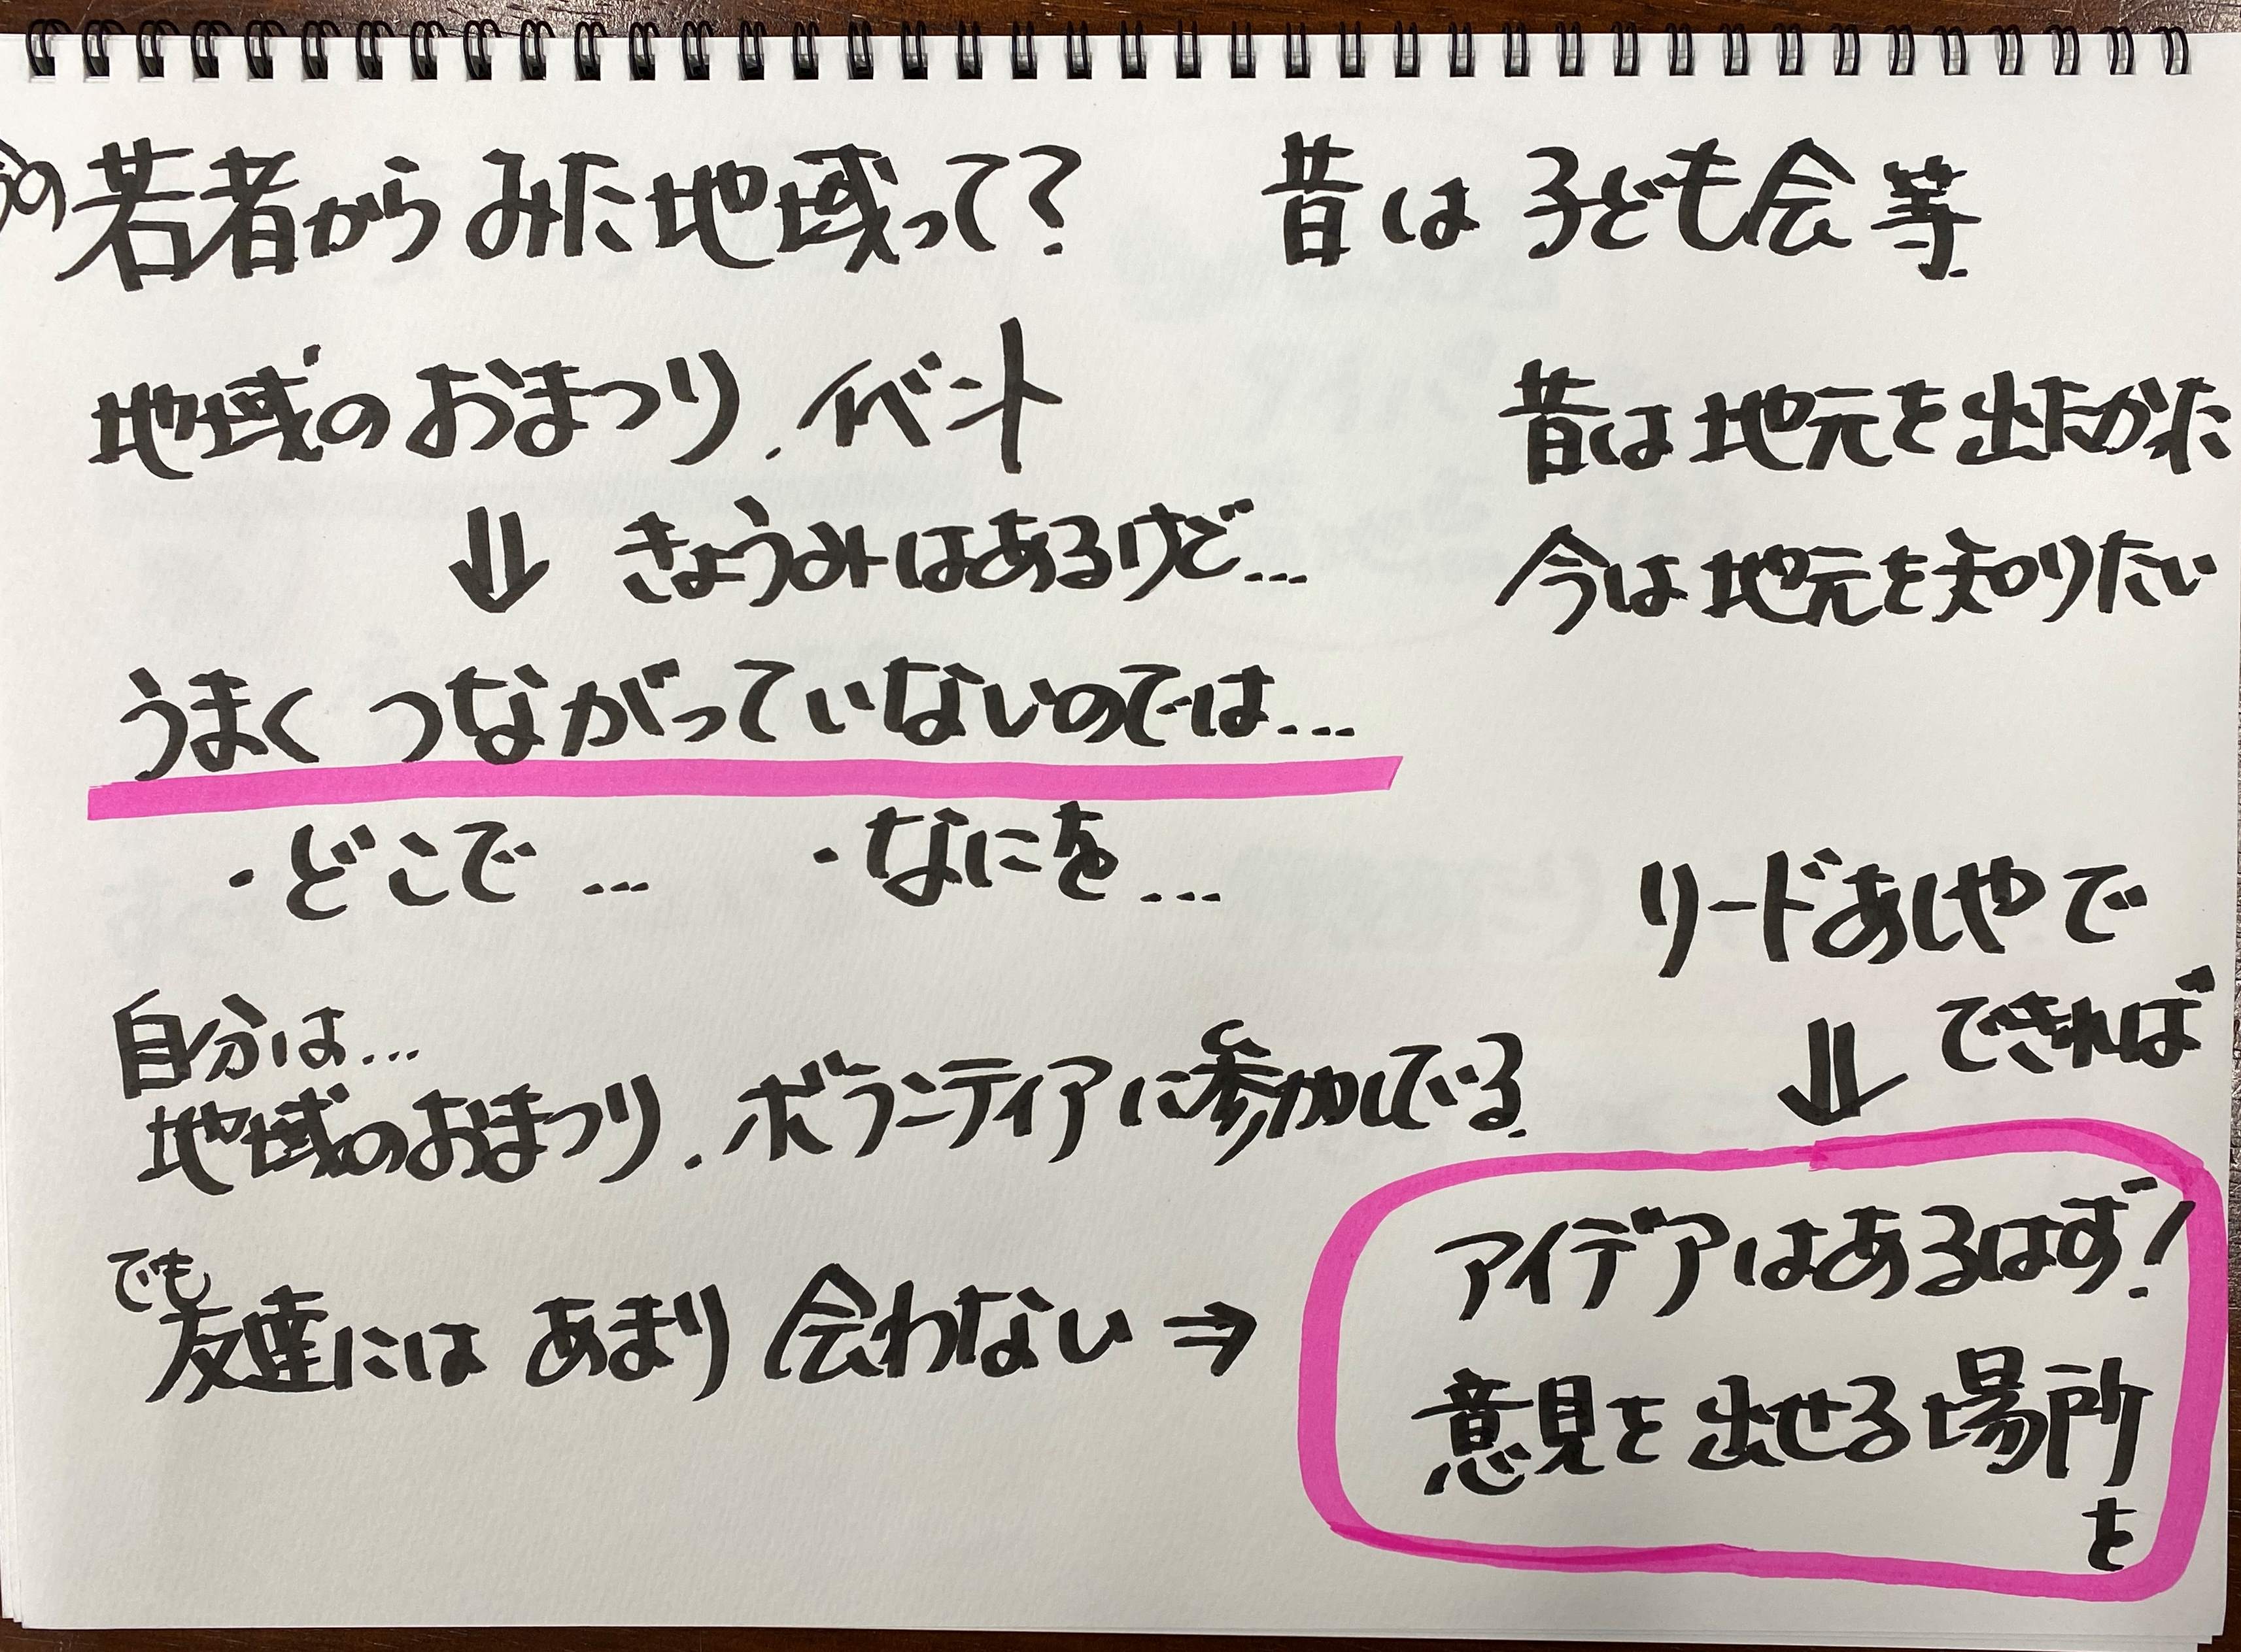 の若者からみた地域って?
昔は子ども会等
地域のおまつり.イベント
昔は地元を出たがた
⇓ きょうみはあるけど...
今は地元を知りたい
うまくつながっていないのでは...
・どこで... ・なにを...
リードあしやで
⇓ できれば
自分は...
地域のおまつり.ボランティアに参加している.
でも
友達にはあまり会わない ⇒
アイデアはあるはず!
意見を出せる場所
を